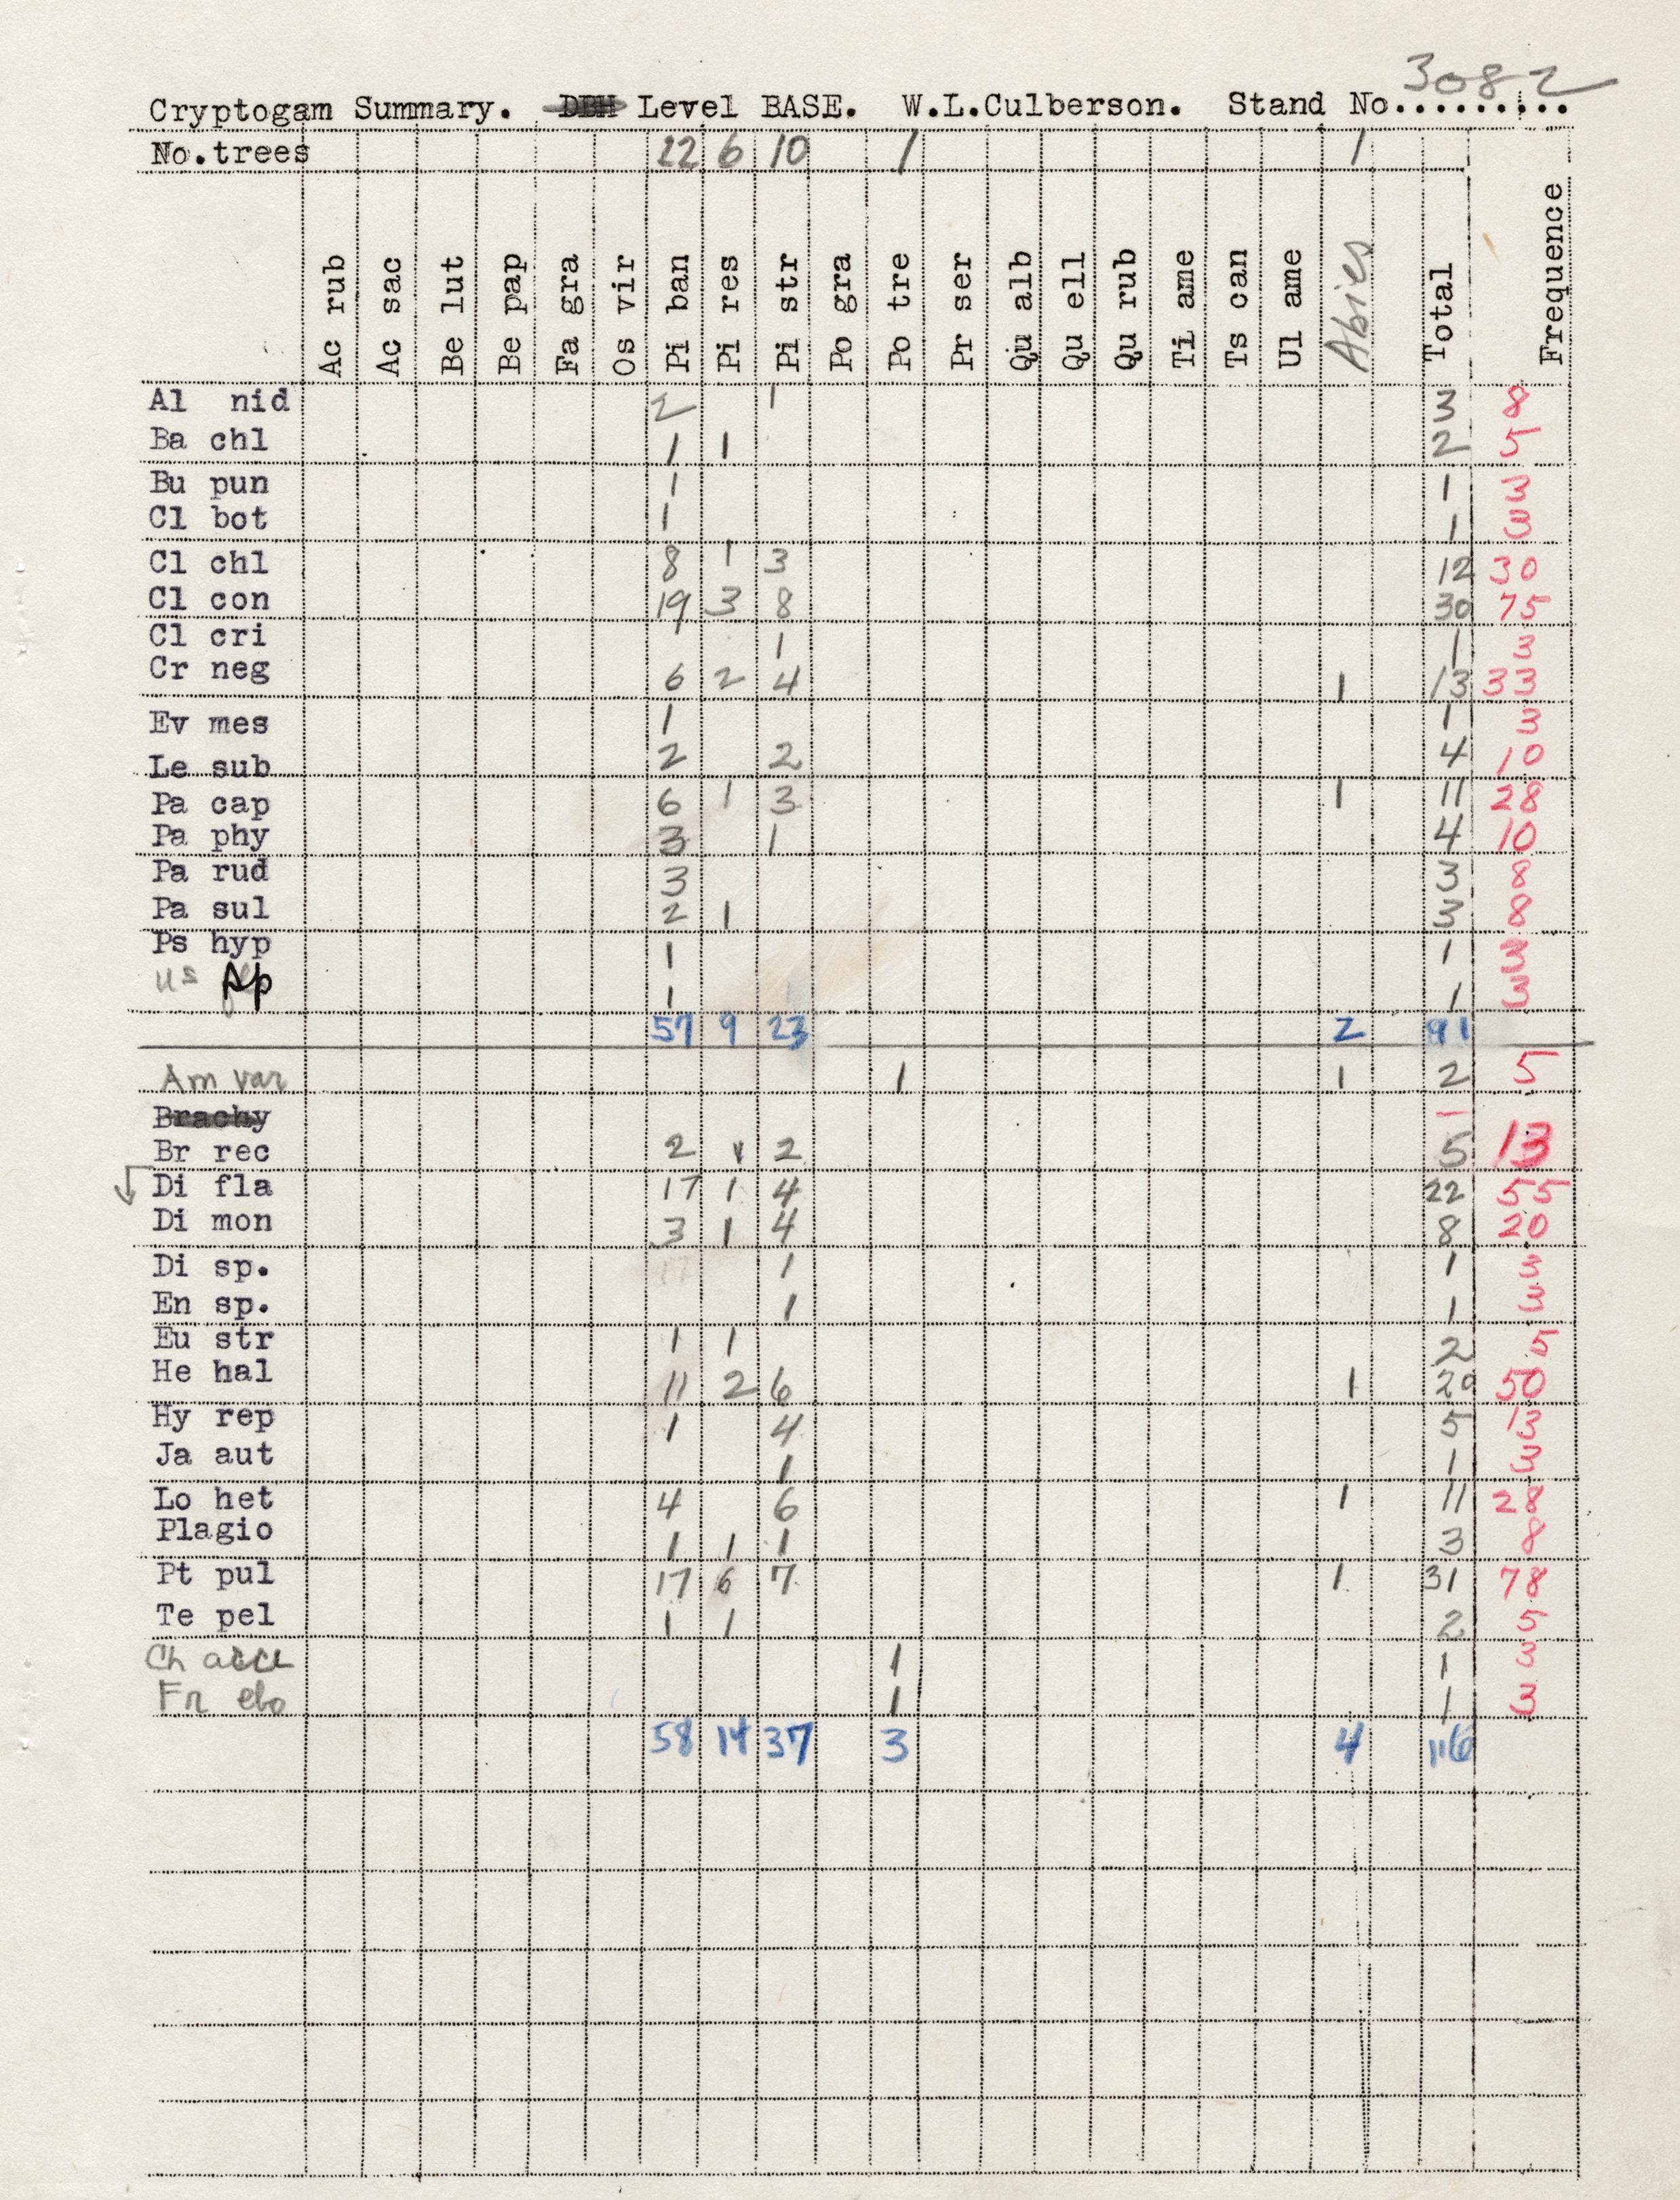 3082
Cryptogam Summary. DBH Level BASE. W.L.Culberson. Stand No.........
No.trees 22 6 10 1 1
Ac rub Ac sac Be lut Be pap Fa gra Os vir Pi ban Pi res Pi str Po gra Po tre Pr ser Qu alb Qu ell Qu rub Ti ame Ts can Ul ame Abies Total Frequence
Al nid 2 1 3 8
Ba chl 1 1 2 5
Bu pun 1 1 3
Cl bot 1 1 3
Cl chl 8 1 3 12 30
Cl con 19 3 8 30 75
Cl cri 1 1 3
Cr neg 6 2 4 1 13 33
Ev mes 1 1 3
Le sub 2 2 4 10
Pa cap 6 1 3 1 11 28
Pa phy 3 1 4 10
Pa rud 3 3 8
Pa sul 2 1 3 8
Ps hyp 1 1 3
Us sp 1 1 3
57 9 23 2 91
Am var 1 1 2 5
Brachy
Br rec 2 1 2 5 13
Di fla 17 1 4 22 55
Di mon 3 1 4 8 20
Di sp. 1 1 3
En sp. 1 1 3
Eu str 1 1 2 5
He hal 11 2 6 1 20 50
Hy rep 1 4 5 13
Ja aut 1 1 3
Lo het 4 6 1 11 28
Plagio 1 1 1 3 8
Pt pul 17 6 7 1 31 78
Te pel 1 1 2 5
Ch 1 1 3
Fr ebo 1 1 3
58 14 37 3 4 116